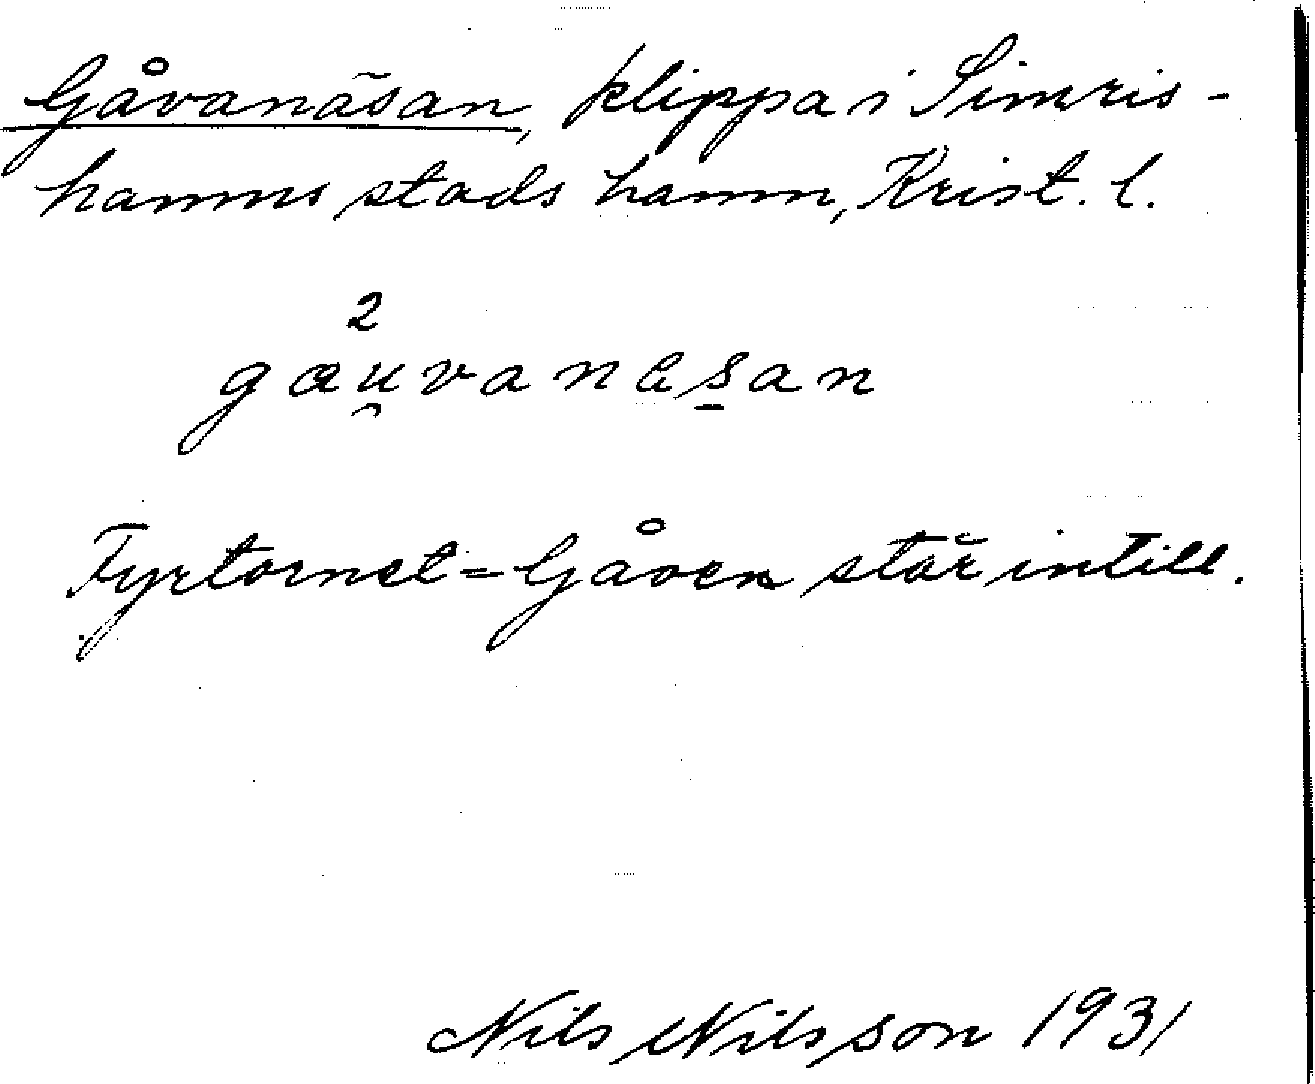 Gåvanäsan, klippa i Simris-
hamns stads hamn, Krist. l.
2
gæu̯vanas̱an
Fyrtornet = Gåven står intill.
Nils Nilsson 1931